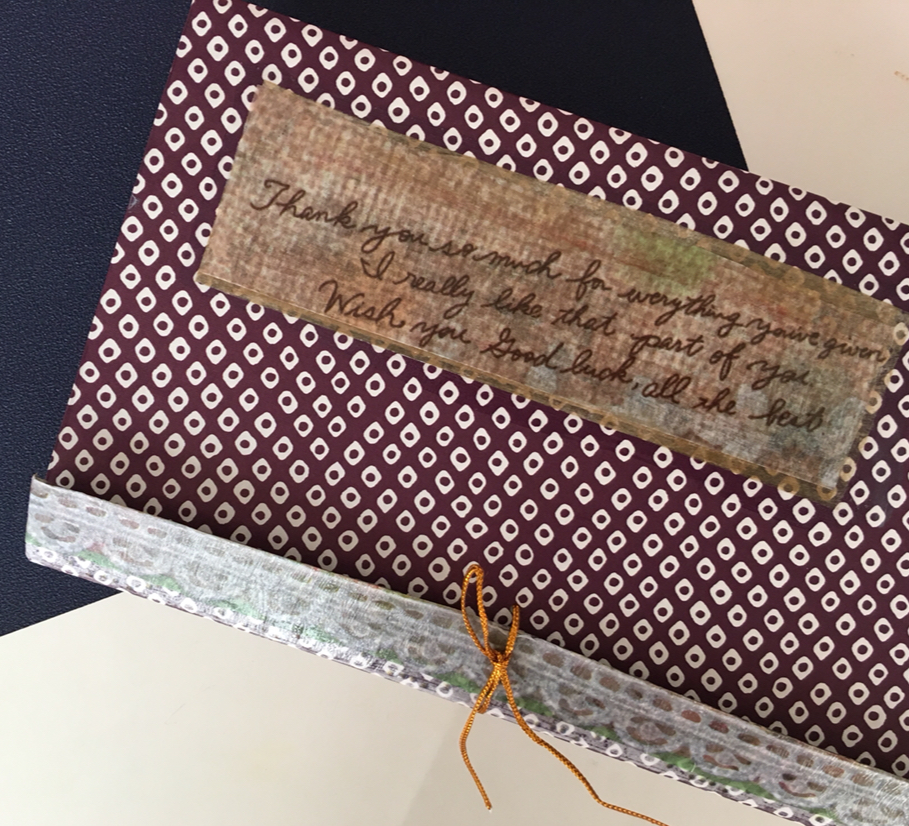 Thank you so much for everything you've given,
I really like that part of you.
Wish you Good luck, all the best